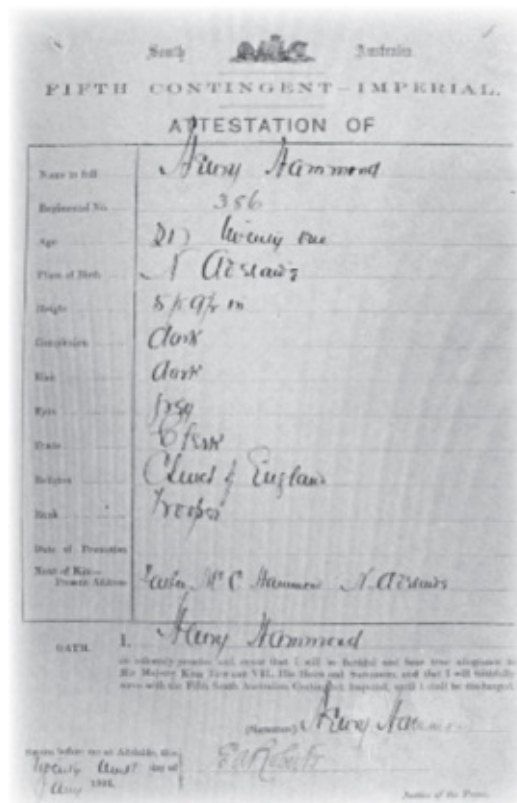 South Australia.
FIFTH CONTINGENT—IMPERIAL.
ATTESTATION OF
Name in full Henry Hammond
Regimental No. 356
Age 21 twenty one
Place of Birth N Adelaide
Height 5 ft 9½ in
Complexion dark
Hair dark
Eyes grey
Trade Clerk
Religion Church of England
Rank Trooper
Date of Promotion
Next of Kin—
Present Address Father Mr C Hammond N. Adelaide
OATH. I, Henry Hammond
do solemnly promise and swear that I will be faithful and bear true allegiance to
His Majesty King Edward VII., His Heirs and Successors, and that I will faithfully
serve with the Fifth South Australian Contingent, Imperial, until I shall be discharged.
(Signature) Henry Hammond
before me at Adelaide, this
day of
1901.
Justice of the Peace.